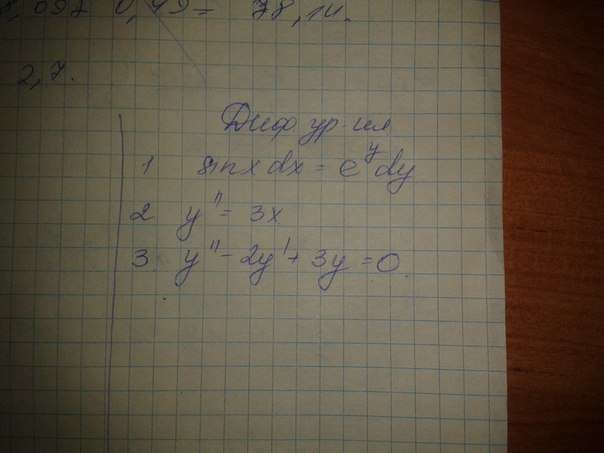 0,49 = 78,14.
2,7.
Диф ур-ия
1 sinx dx = e^y dy
2 y'' = 3x
3. y'' - 2y' + 3y = 0